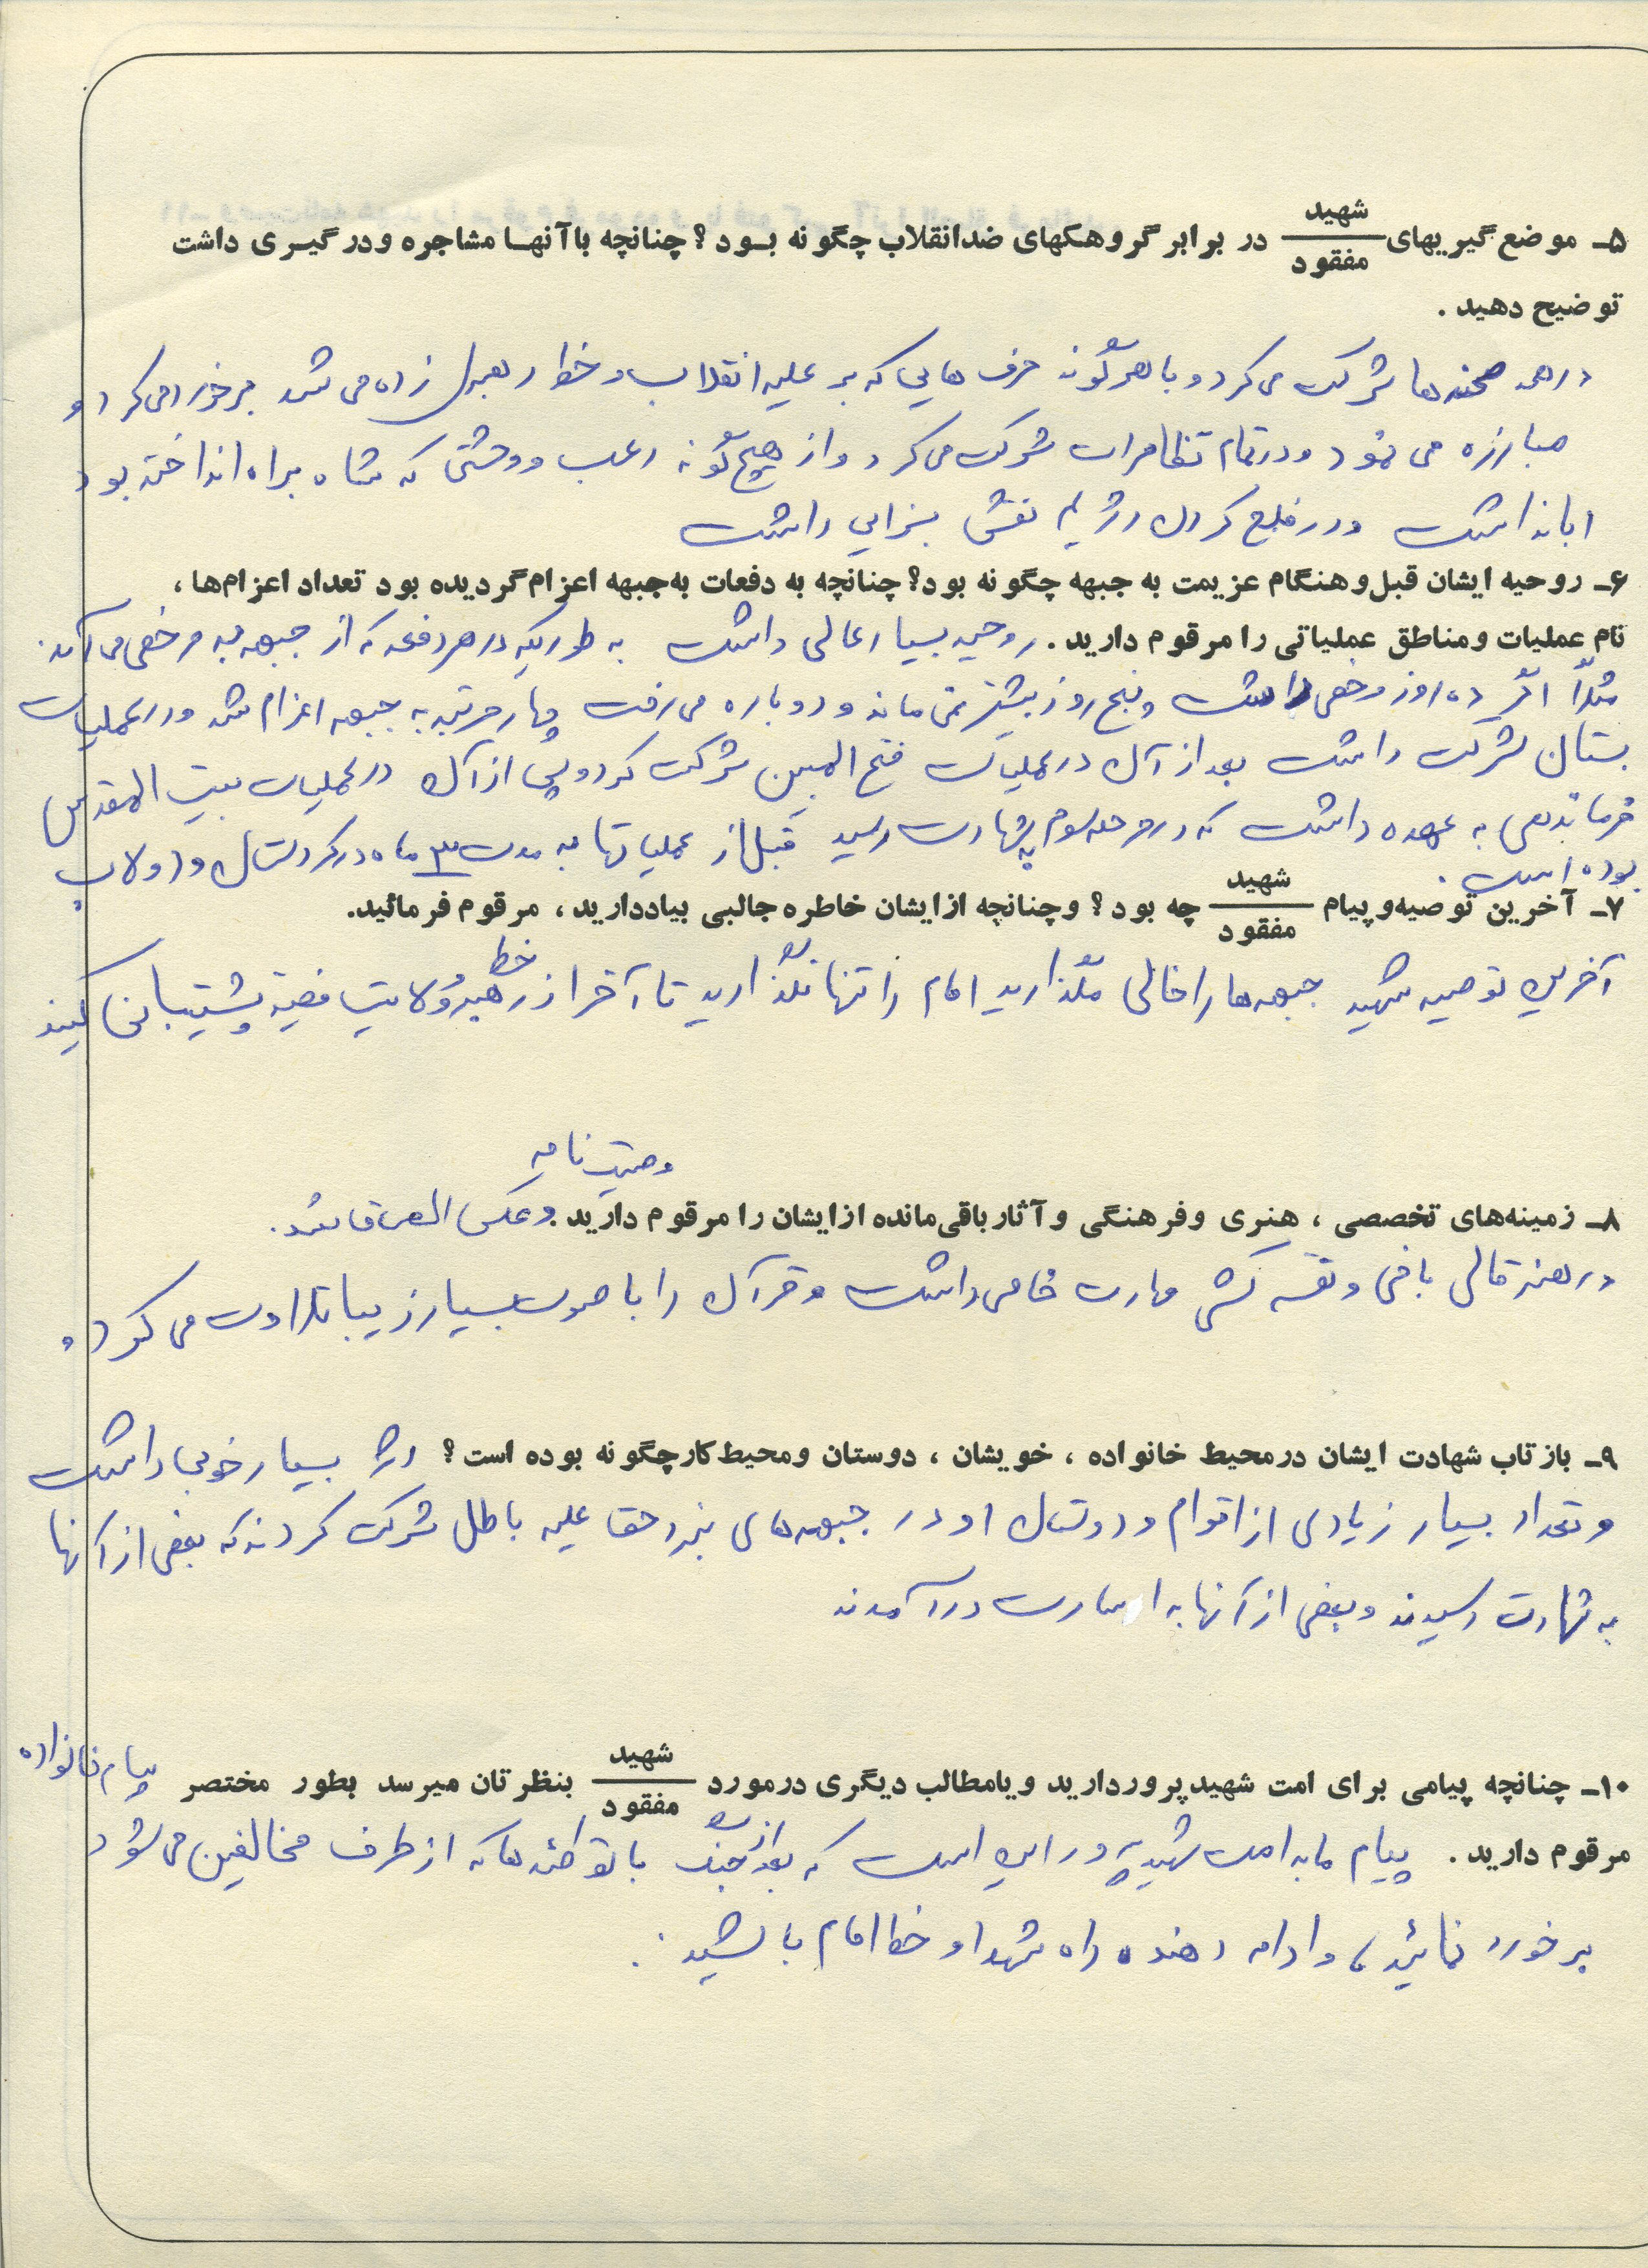 ۵ـ موضع‌گیریهای شهید / مفقود در برابر گروهکهای ضدانقلاب چگونه بود؟ چنانچه باآنها مشاجره ودرگیری داشت
توضیح دهید .
درهمه صحنه‌ها شرکت می‌کرد و با هرگونه حرف هایی که بر علیه انقلاب و خط رهبری زده می شد برخورد می کرد و
مبارزه می نمود و در تمام تظاهرات شرکت می کرد و از هیچ گونه رعب و وحشتی که شاه براه انداخته بود
ابا نداشت و در فلج کردن رژیم نقش بسزایی داشت
۶ـ روحیه ایشان قبل‌وهنگام عزیمت به جبهه چگونه بود؟ چنانچه به دفعات به‌جبهه اعزام‌گردیده بود تعداد اعزام‌ها ،
نام عملیات ومناطق عملیاتی را مرقوم دارید . روحیه بسیار عالی داشت به طوریکه در هر دفعه که از جبهه به مرخصی می آمد.
مثلاً اگر ده روز مرخصی داشت پنج روز بیشتر نمی ماند و دوباره می رفت چهار مرتبه به جبهه اعزام شد و در عملیات
بستان شرکت داشت بعد از آن در عملیات فتح المبین شرکت کرد و پس از آن در عملیات بیت المقدس
فرماندهی به عهده داشت که در مرحله سوم به شهادت رسید قبل از عملیاتها به مدت ۳ ماه در کردستان و دولاب
بوده است.
۷ـ آخرین توصیه‌وپیام شهید / مفقود چه بود؟ وچنانچه ازایشان خاطره جالبی بیاددارید ، مرقوم فرمائید.
آخرین توصیه شهید جبهه ها را خالی مگذارید امام را تنها نگذارید تا آخر از خط رهبر و ولایت فقیه پشتیبانی کنید
وصیت نامه
۸ـ زمینه‌های تخصصی ، هنری وفرهنگی وآثارباقی‌مانده ازایشان را مرقوم دارید . و عکس الصاق شد.
در هنر قالی بافی و نقشه کشی مهارت خاصی داشت و قرآن را با صوت بسیار زیبا تلاوت می کرد.
۹ـ بازتاب شهادت ایشان درمحیط خانواده ، خویشان ، دوستان ومحیط‌کارچگونه بوده است؟ اثر بسیار خوبی داشت
و تعداد بسیار زیادی از اقوام و دوستان او در جبهه های نبرد حق علیه باطل شرکت کردند که بعضی از آنها
به شهادت رسیدند و بعضی از آنها به اسارت در آمدند
۱۰ـ چنانچه پیامی برای امت شهیدپروردارید ویامطالب دیگری درمورد شهید / مفقود بنظرتان میرسد بطور مختصر پیام خانواده
مرقوم دارید . پیام ما به امت شهید پرور این است که بعد از جنگ با توطئه ها که از طرف مخالفین می شود
برخورد نمائید، و ادامه دهنده راه شهدا و خط امام باشید.